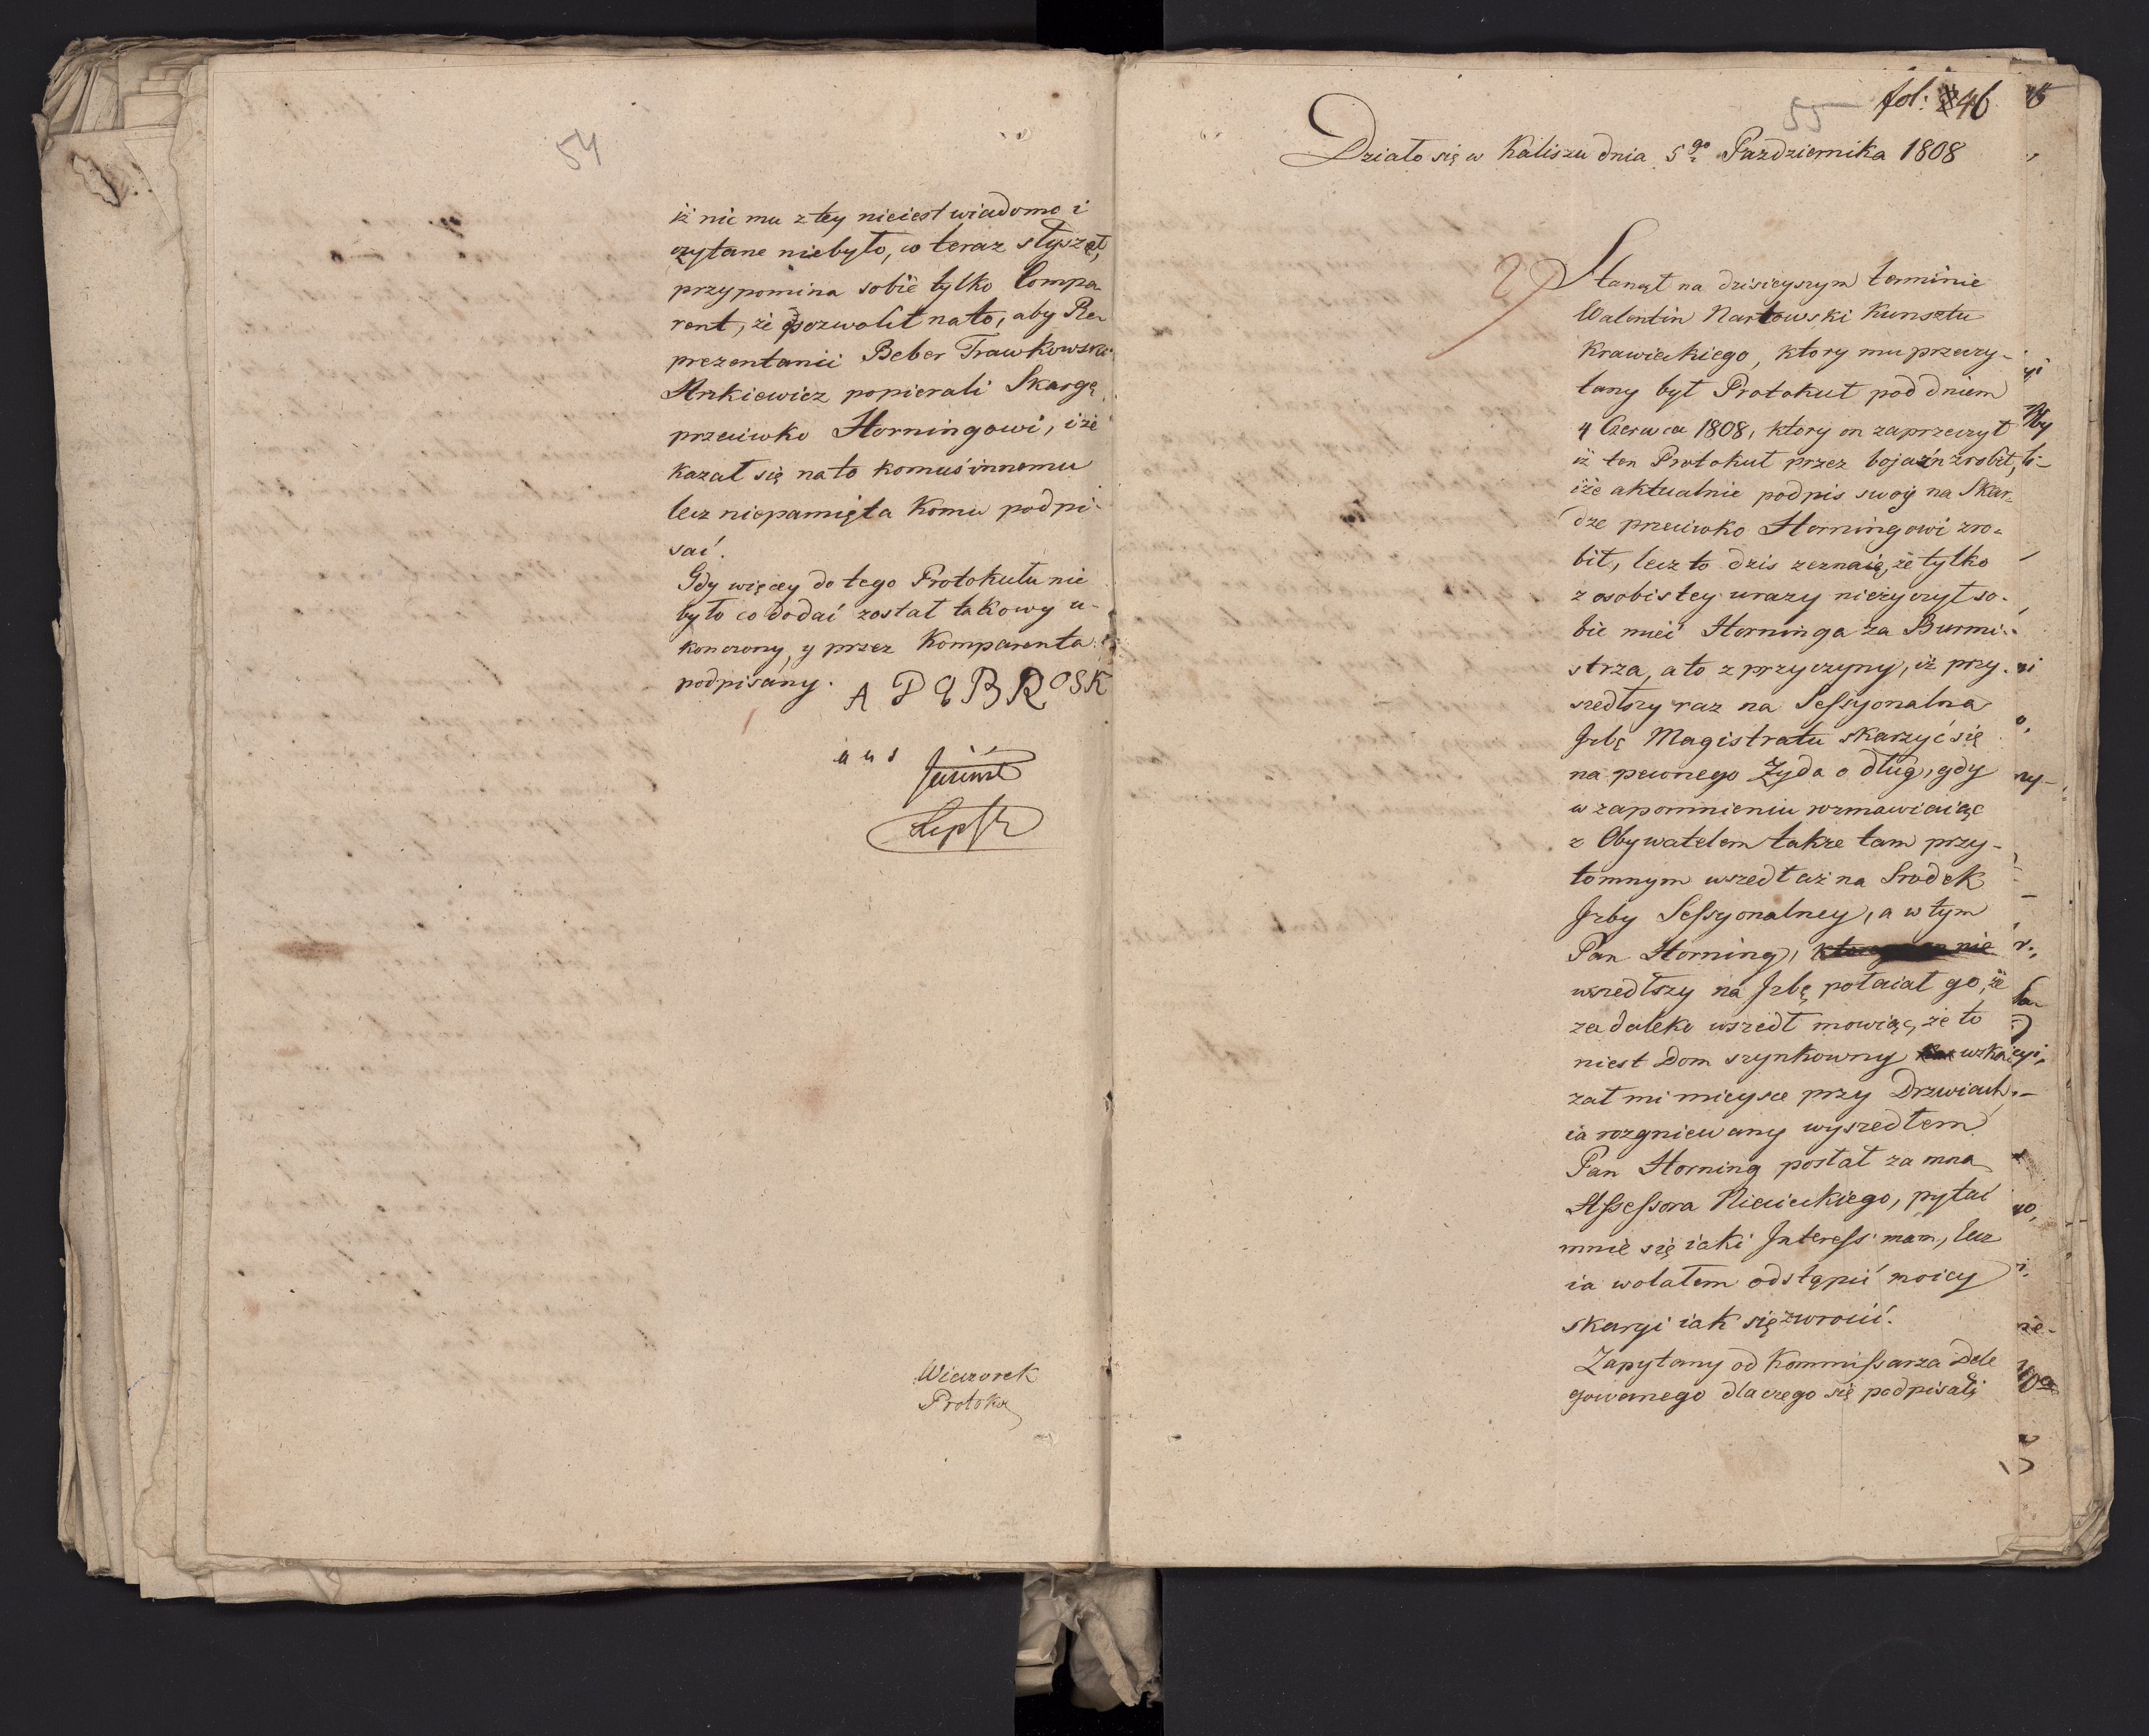 54
iż nic mu z tey nieiest wiadomo i
czytane niebyło, co teraz słyszał,
przypomina sobie tylko Compa
rent, że pozwolił na to, aby Re-
prezentanci Beber Trawkowski
Ankiewicz popierali Skargę
przeciwko Horningowi, i że
kazał się na to komuś innemu
lecz niepamięta komu podpi-
sać.
Gdy więcey do tego Protokułu nie
było co dodać został takowy u-
konczony, y przez Komparenta
podpisany.
A D Ą B R O S K
a u s
Wieczorek
Protok
55 fol: 46
Działo się w Kaliszu dnia 5go Pazdziernika 1808
Stanął na dzisieyszym terminie
Walentin Nartowski Kunsztu
Krawieckiego, ktory mu przeczy-
tany był Protokuł pod dniem
4 Czerwca 1808, ktory on zaprzeczył
iż ten Protokuł przez bojaźn zrobił,
iże aktualnie podpis swoy na Skar-
dze przeciwko Horningowi zro-
bił, lecz to dzis zeznaię, że tylko
z osobistey urazy nieżyczył so-
bie mieć Horninga za Burmi-
strza, a to z przyczyny, iż przy-
szedłszy raz na Sessyonalna
Jzbę Magistratu skarzyć się
na pewnego Żyda o dług, gdy
w zapomnieniu rozmawiaiąc
z Obywatelem takze tam przy-
tomnym wszedł aż na Srodek
Jzby Sessyonalney, a w tym
Pan Horning,
wszedłszy na Jzbę połaiał go, że
za daleko wszedł mowiąc, że to
niest Dom szynkowny wska-
zał mi mieysce przy Drzwiach,
ia rozgniewany wyszedłem
Pan Horning posłał za mna
Assessora Nieciekiego, pytać
mnie się iaki Jnteress mam, lecz
ia wolałem odstąpić moiey
skargi iak się zwrocić.
Zapytany od Kommissarza Dele
gowanego dlaczego się podpisali